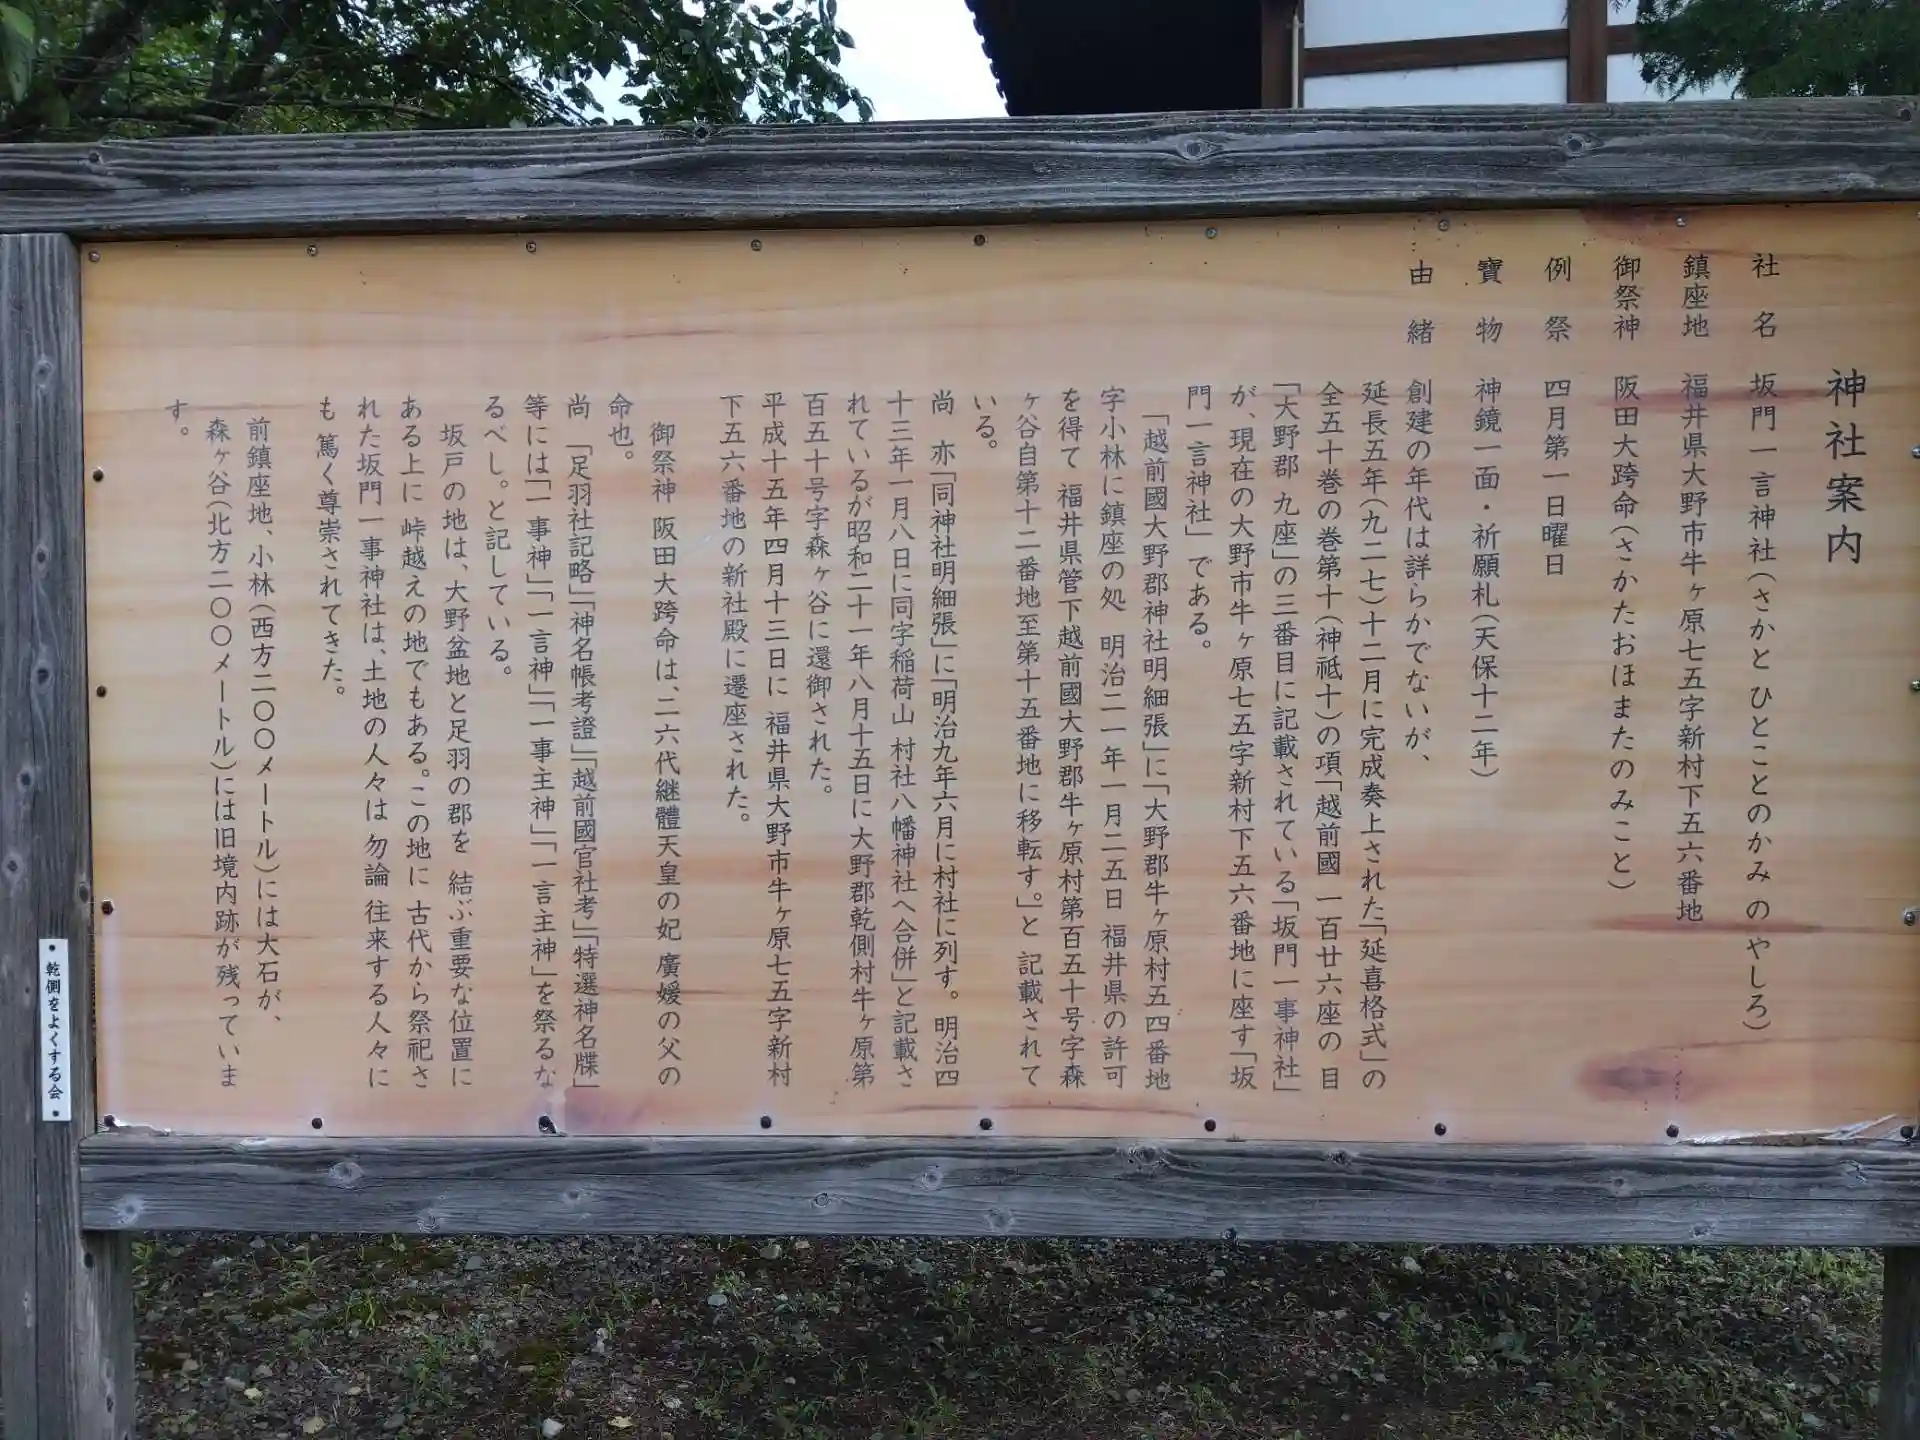 神社案内
社 名 坂門一言神社(さかと ひとことのかみ のやしろ)
鎮座地 福井県大野市牛ヶ原七五字新村下五六番地
御祭神 阪田大跨命(さかたおほまたのみこと)
例 祭 四月第一日曜日
寶 物 神鏡一面・祈願札(天保十二年)
由 緒 創建の年代は詳らかでないが、
延長五年(九二七)十二月に完成奏上された「延喜格式」の
全五十巻の巻第十(神祗十)の項「越前國 一百廿六座の 目
「大野郡 九座」の三番目に記載されている「坂門一事神社」
が、現在の大野市牛ヶ原七五字新村下五六番地に座す「坂
門一言神社」である。
「越前國大野郡神社明細張」に「大野郡牛ヶ原村五四番地
字小林に鎮座の処 明治二一年一月二五日 福井県の許可
を得て 福井県管下越前國大野郡牛ヶ原村第百五十号字森
ヶ谷自第十二番地至第十五番地に移転す。」と 記載されて
いる。
尚 亦「同神社明細張」に「明治九年六月に村社に列す。明治四
十三年一月八日に同字稲荷山 村社八幡神社へ合併」と記載さ
れているが昭和二十一年八月十五日に大野郡乾側村牛ヶ原第
百五十号字森ヶ谷に還御された。
平成十五年四月十三日に 福井県大野市牛ヶ原七五字新村
下五六番地の新社殿に遷座された。
御祭神 阪田大跨命は、二六代継體天皇の妃 廣媛の父の
命也。
尚 「足羽社記略」「神名帳考證」「越前國官社考」「特選神名牒」
等には「一事神」「一言神」「一事主神」「一言主神」を祭るな
るべし。と記している。
坂戸の地は、大野盆地と足羽の郡を 結ぶ重要な位置に
ある上に 峠越えの地でもある。この地に 古代から祭祀さ
れた坂門一事神社は、土地の人々は 勿論 往来する人々に
も 篤く尊崇されてきた。
前鎮座地、小林(西方二〇〇メートル)には大石が、
森ヶ谷(北方二〇〇メートル)には旧境内跡が残っていま
す。
乾側をよくする会